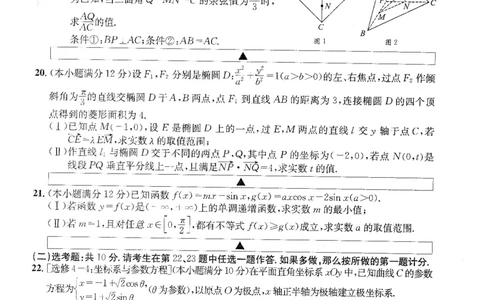 求AQ/AC的值.
条件①:BP⊥AC;条件②:AB=AC.
N
C
图1
B
图2
20.(本小题满分12分)设F₁,F₂分别是椭圆D:x²/a²+y²/b²=1(a>b>0)的左、右焦点,过点F₂作倾
斜角为π/3的直线交椭圆D于A,B两点,点F₁到直线AB的距离为3,连接椭圆D的四个顶
点得到的菱形面积为4.
(Ⅰ)已知点M(-1,0),设E是椭圆D上的一点,过E,M两点的直线l交y轴于点C,若
CE=λEM,求实数λ的取值范围;
(Ⅱ)作直线l₁与椭圆D交于不同的两点P,Q,其中点P的坐标为(-2,0),若点N(0,t)是
线段PQ垂直平分线上一点,且满足NP·NQ=4,求实数t的值.
21.(本小题满分12分)已知函数f(x)=mx-sinx,g(x)=axcosx-2sinx(a>0).
(Ⅰ)若函数y=f(x)是(-∞,+∞)上的单调递增函数,求实数m的最小值;
(Ⅱ)若m=1,且对任意x∈[0,π/2],都有不等式f(x)≥g(x)成立,求实数a的取值范围.
(二)选考题:共10分.请考生在第22、23题中任选一题作答.如果多做,那么按所做的第一题计分.
22.[选修4-4:坐标系与参数方程](本小题满分10分)在平面直角坐标系xOy中,已知曲线C的参数
方程为{x=-1+√2cosθ,(θ为参数),以原点O为极点,x轴正半轴为极轴建立极坐标系.
y=1+√2sinθ